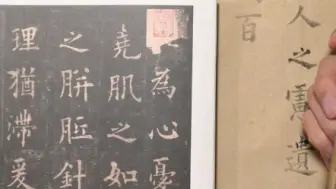 人之遺
百
為心憂
堯肌之如
之胼胝針
理猶滯爰